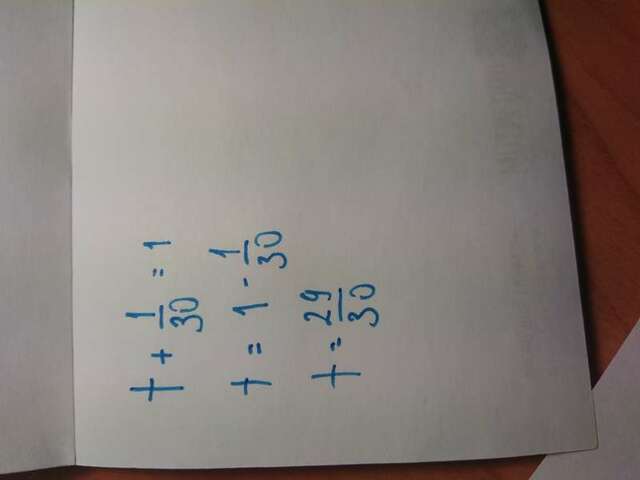 t + 1/30 = 1
t = 1 - 1/30
t = 29/30